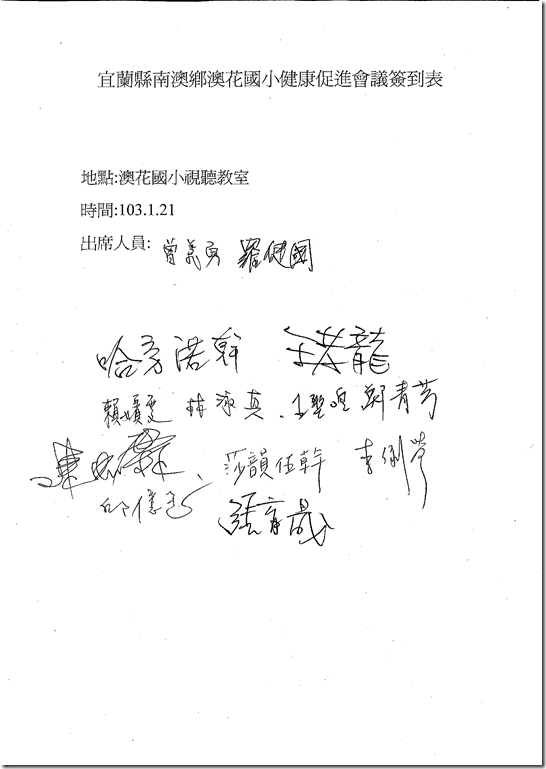 宜蘭縣南澳鄉澳花國小健康促進會議簽到表
地點:澳花國小視聽教室
時間:103.1.21
出席人員: 曾義勇 羅健國
哈勇諾幹 龍
賴 林淑真 鄭青芳
莎韻伍幹 李
邱億 張育晟